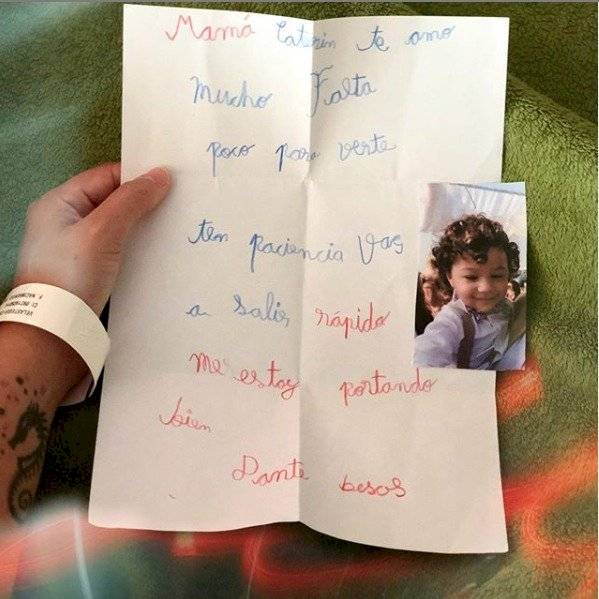 Mamá Caterin te amo
Mucho Falta
poco para verte
ten paciencia Vas
a salir rápido
me estoy portando
bien
Dante besos